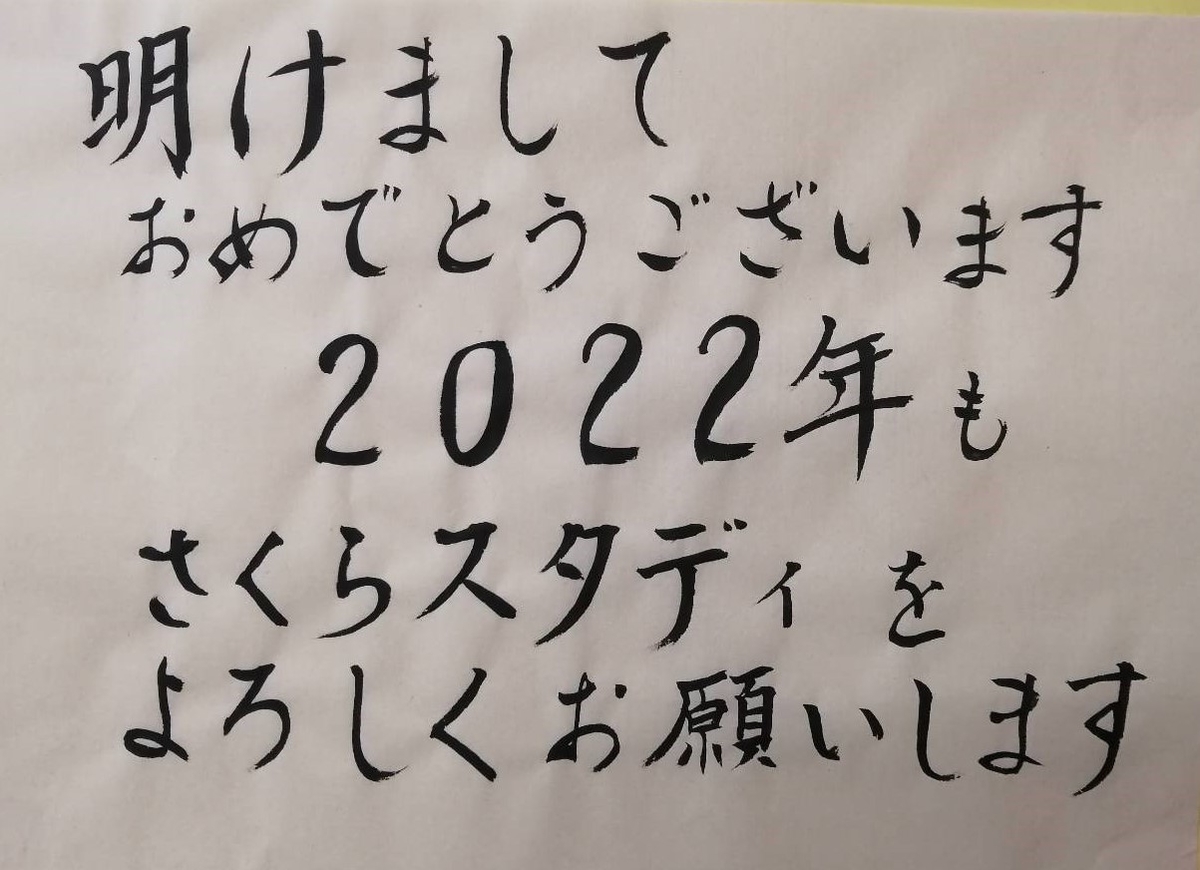 明けまして
おめでとうございます
2022年も
さくらスタディを
よろしくお願いします